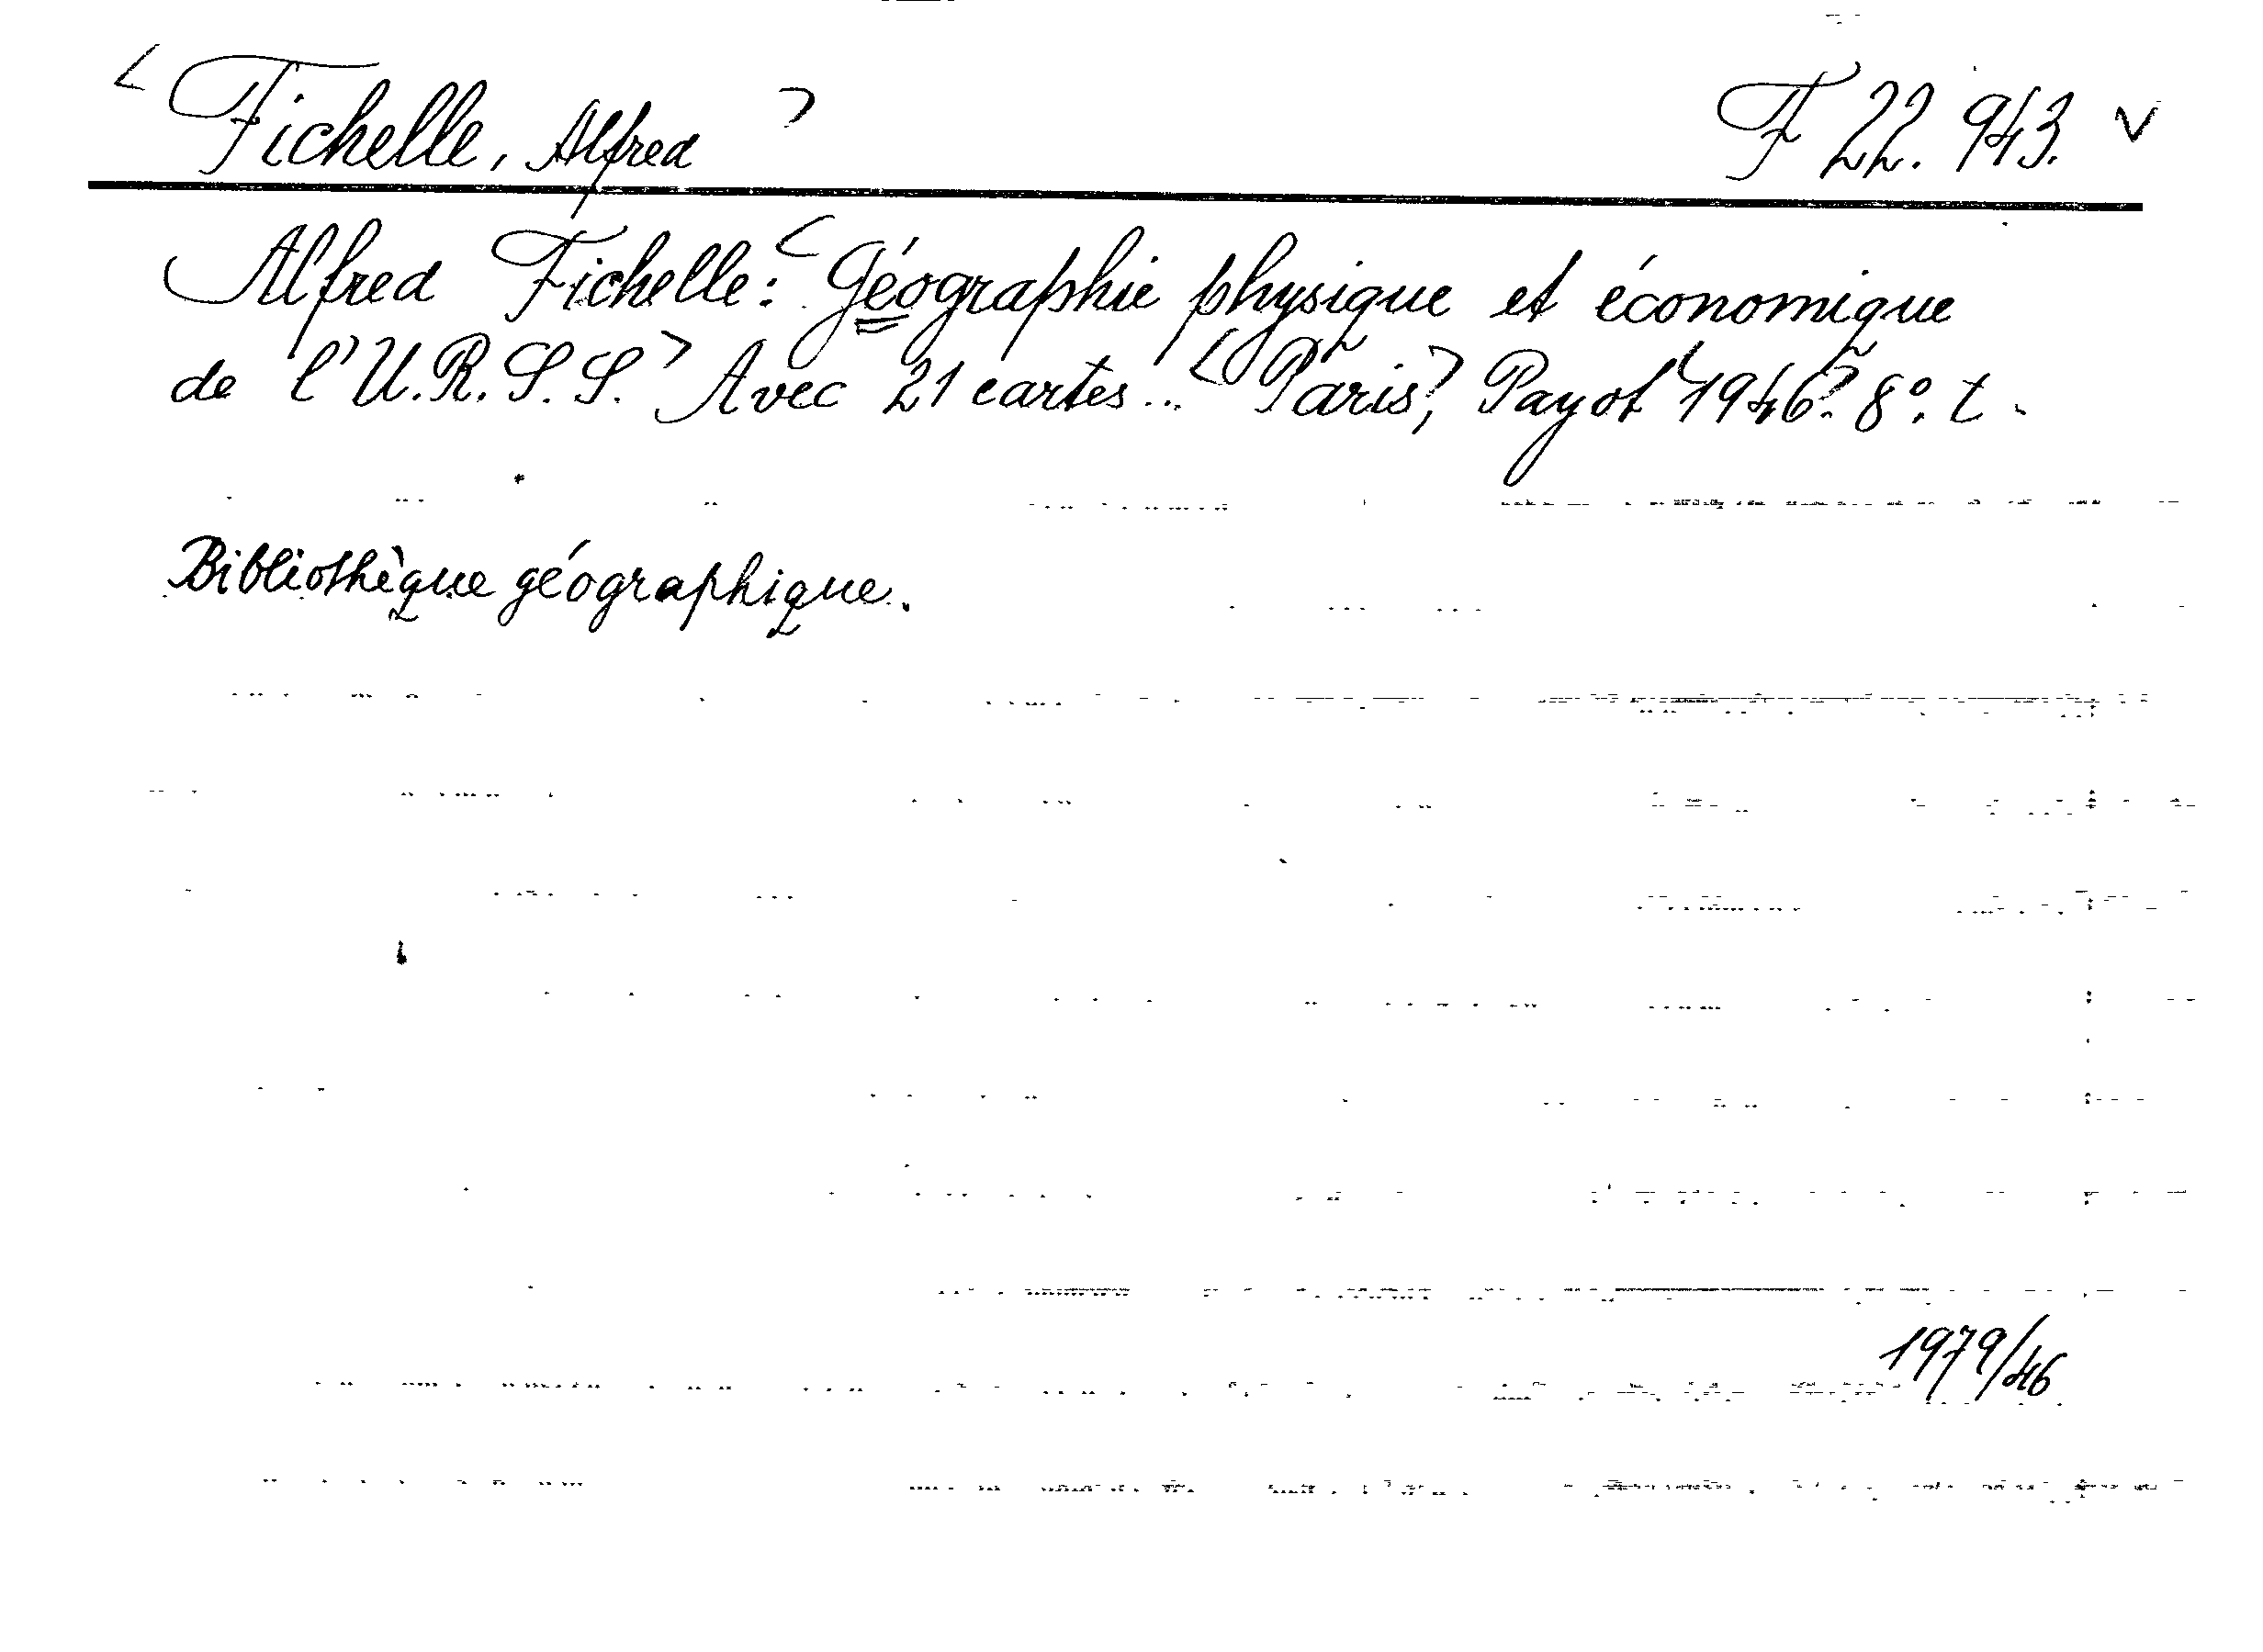 < Fichelle, Alfred > F 22.943. v
Alfred Fichelle: <Géographie physique et économique
de l'U.R.S.S.> Avec 21 cartes... <Paris>, Payot <1946>. 8°. t.
Bibliothèque géographique.
1979/46